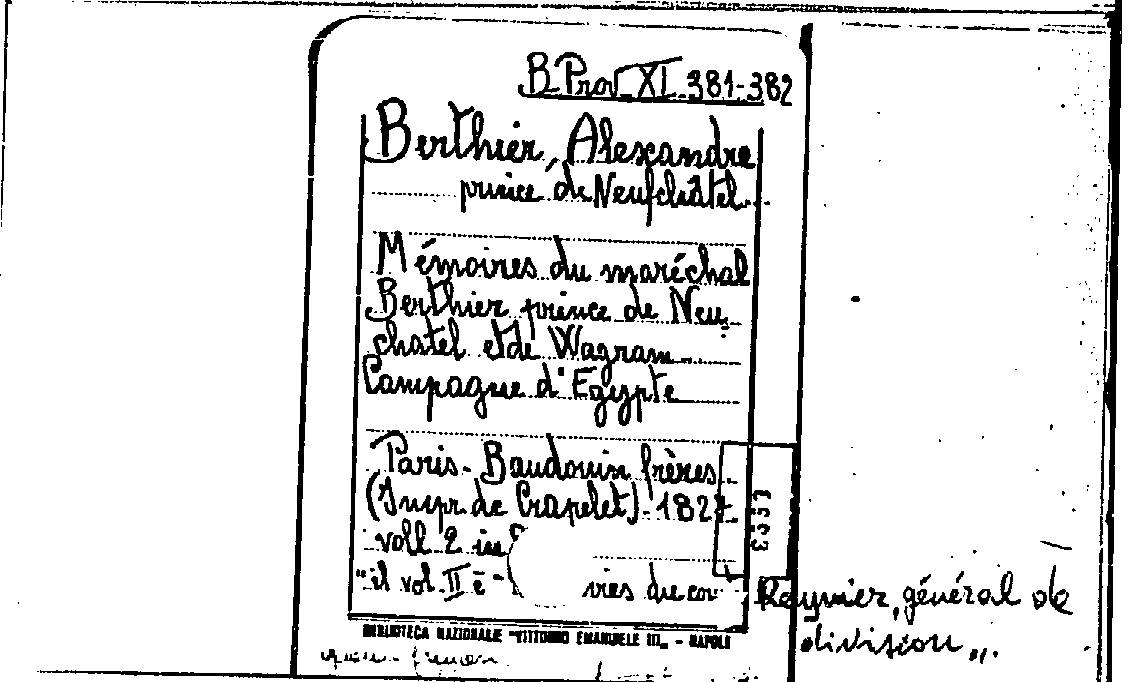 B. Prov. XI. 381-382
Berthier, Alexandre
prince de Neufchâtel
Mémoires du maréchal
Berthier prince de Neu-
chatel et de Wagram
Campagne d'Egypte
Paris - Baudouin frères
(Impr. de Crapelet) - 1827
voll. 2 in
"il vol. II è - res du co Reynier, général de
division„.
BIBLIOTECA NAZIONALE "VITTORIO EMANUELE III„ - NAPOLI